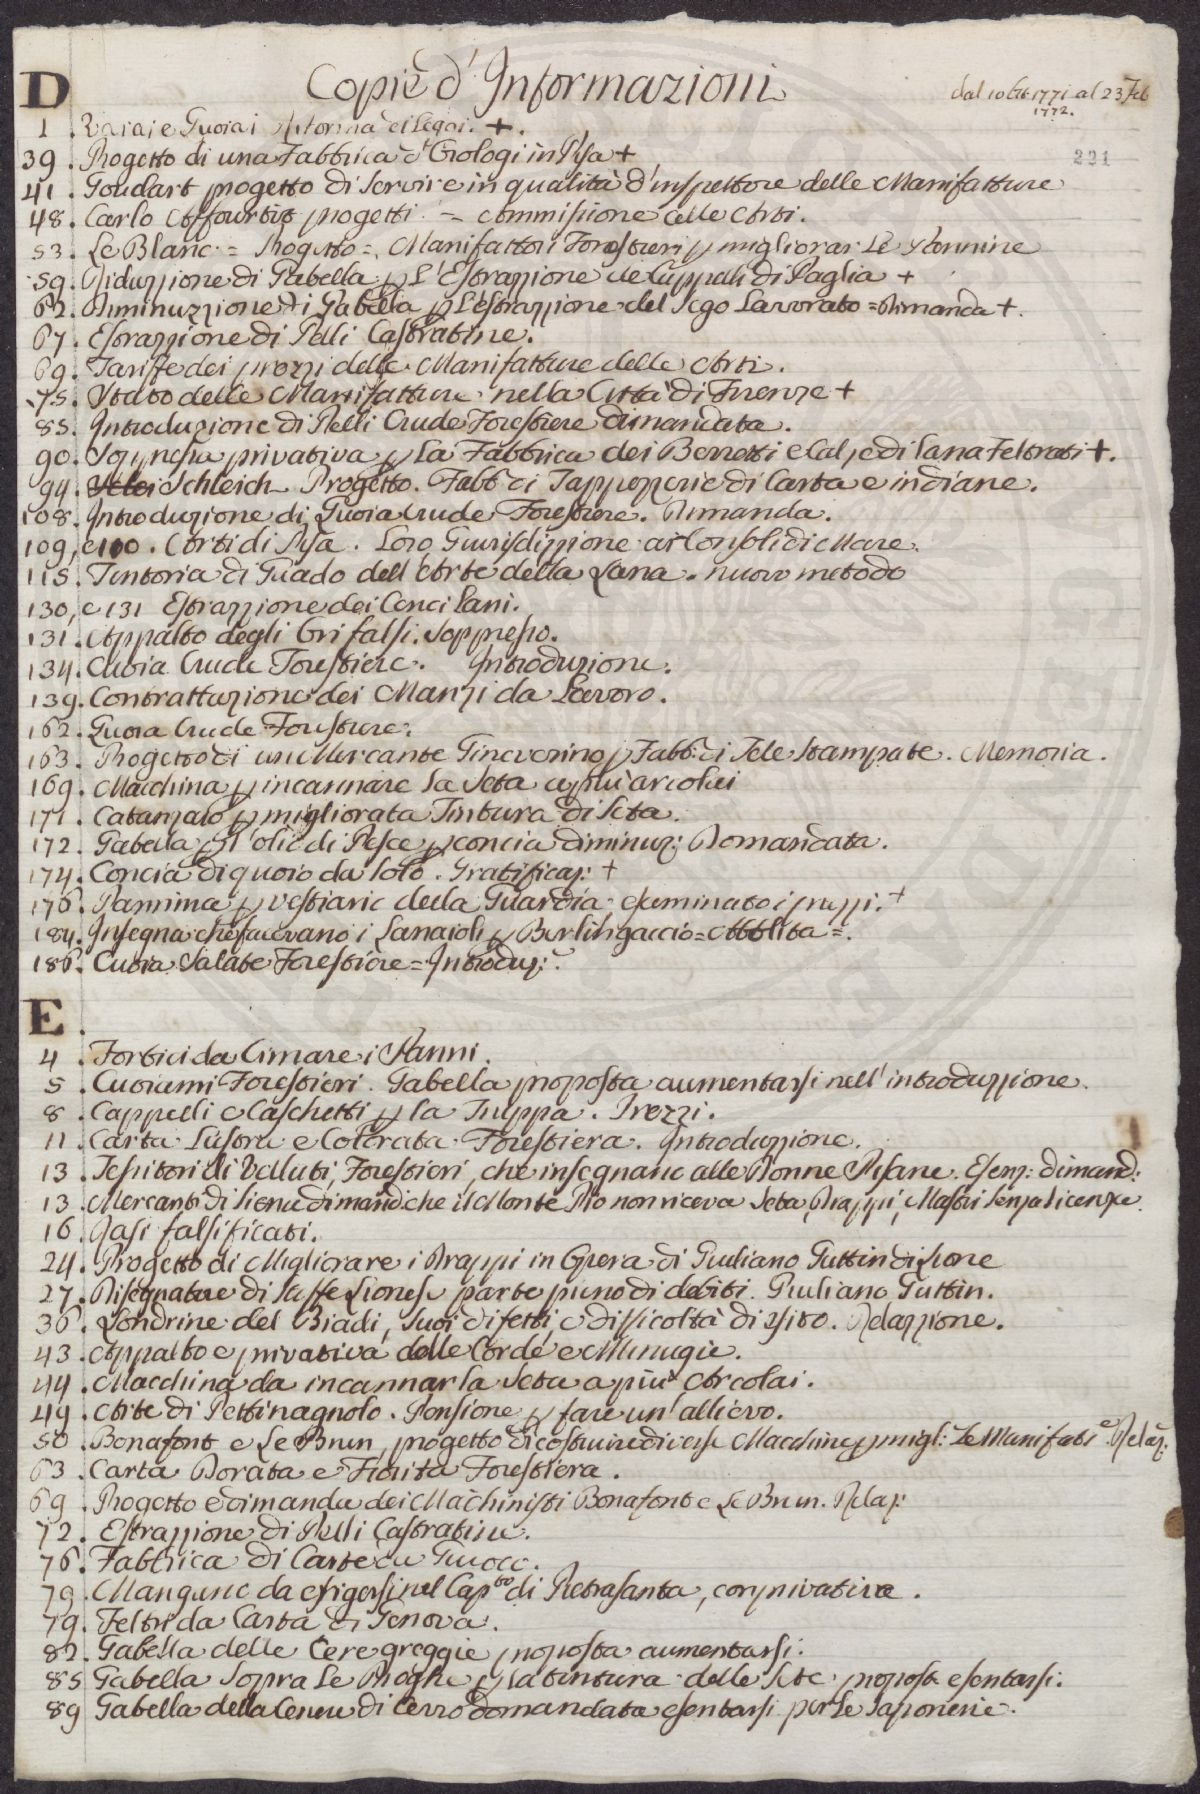 Copie d'Informazioni
dal 10 1771 al 23 Feb
1772.
D
221
1. e Quoiai Riforma di Leggi. +.
39. Progetto di una Fabbrica d'Orologi in Pisa +
41. Goudart progetto di servire in qualità d'inspettore delle Manifatture
48. Carlo progetti = commissione delle Arti.
53. Le Blanc = Progetto = Manifattori Forestieri p migliorar le Pannine
59. Riduzzione di Gabella p L'Estrazzione de Cappelli di Paglia +
62. Diminuzzione di Gabella p L'estrazzione del sego Lavorato = Dimanda +.
67. Estrazzione di Pelli Castratine.
69. Tariffe dei prezzi delle Manifatture delle Arti.
75. Stato delle Manifatture nella Città di Firenze +
85. Introduzione di Pelli Crude Forestiere dimandata.
90. Soppressa privativa p La Fabbrica dei Berretti e Calze di lana Feltrati +.
94. Schleich Progetto. Fabb di Tappezzerie di Carta e indiane.
108. Introduzione di Quoia Crude Forestiere. Dimanda.
109, e 110. Corti di Pisa. Loro Giurisdizzione ai Consoli di Mare.
115. Tintoria di Guado dell'Arte della Lana. nuovo metodo
130, e 131 Estrazzione dei Cenci Lani.
131. Appalto degli Ori falsi. Soppresso.
134. Cuoia Crude Forestiere. Introduzione.
139. Contrattazione dei Manzi da Lavoro.
162. Quoia Crude Forestiere.
163. Progetto di un Mercante Ginevrino p Fabb: di Tele Stampate. Memoria.
169. Macchina p incannare la Seta a più arcolai
171. Catanzaro p migliorata Tintura di Seta.
172. Gabella p l'olio di Pesce p concia diminuz: Domandata.
174. Concia di quoio da Solo. Gratificaz: +
176. Pannina p vestiario della Guardia esaminato i prezzi. +
184. Insegna che facevano i Lanaioli p Berlingaccio = Abolita =.
186. Cuoia Salate Forestiere = Introduz:
E.
4. Forbici da Cimare i Panni.
5. Cuoiami Forestieri. Gabella proposta aumentarsi nell'introduzzione.
8. Cappelli e Caschetti p la Truppa. Prezzi.
11. Carta Lustra e Colorata Forestiera. Introduzzione.
13. Tessitori di Velluti, Forestieri, che insegnano alle Donne Pisane. Esenz: dimand:
13. Mercanti di Siena dimand che il Monte Pio non riceva Seta, Drappi, Nastri senza licenza.
16. Dasi falsificati.
24. Progetto di Migliorare i Drappi in Opera di Giuliano Guttin di Lione
27. Disegnatore di Stoffe Lionese parte pieno di debiti. Giuliano Guttin.
36. Londrine del Biadi, suoi difetti, e difficoltà di esito. Relazzione.
43. Appalto e privativa delle Corde e Minugie.
44. Macchina da incannar la Seta a più Arcolai.
49. Arte di Pettinagnolo. Pensione p fare un'allievo.
50. Bonafont e Le Brun, progetto di costruire diverse Macchine p migl: Le Manifat.e Relaz:
63. Carta Dorata e Fiorita Forestiera.
69. Progetto e dimanda dei Machinisti Bonafont e Le Brun. Relaz:
72. Estrazzione di Pelli Castratine.
76. Fabbrica di Carte da Giuoco.
79. Mangano da erigersi nel Cap.to di Pietrasanta, con privativa.
79. Feltri da Carta di Genova.
82. Gabella delle Cere greggie proposta aumentarsi.
85. Gabella Sopra Le Droghe p la tintura delle Sete proposta esentarsi.
89. Gabella della Cenere di Cerro domandata esentarsi per le Saponerie.